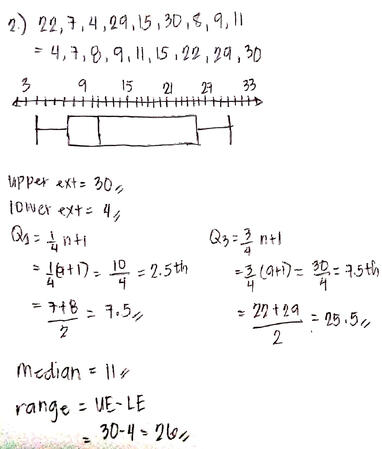 2.) 22, 7, 4, 29, 15, 30, 8, 9, 11
= 4, 7, 8, 9, 11, 15, 22, 29, 30
3 9 15 21 27 33
upper ext = 30
lower ext = 4
Q1 = 1/4 n+1
= 1/4 (9+1) = 10/4 = 2.5th
= 7+8/2 = 7.5
Q3 = 3/4 n+1
= 3/4 (9+1) = 30/4 = 7.5th
= 22+29/2 = 25.5
Median = 11
range = UE-LE
= 30-4 = 26